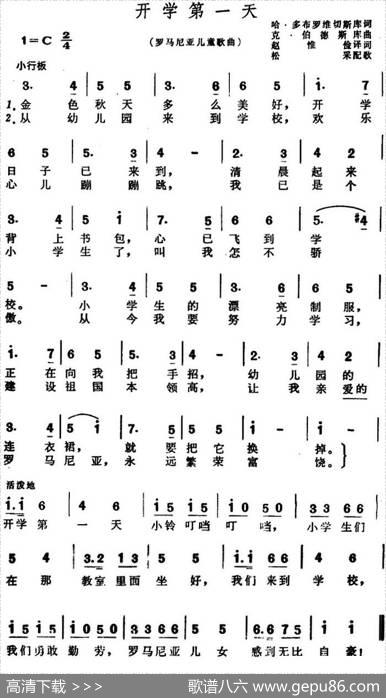 开学第一天
1=C 2/4
（罗马尼亚儿童歌曲）
哈·多布罗维切斯库词
克·伯德斯库曲
赵惟俭译词
松采配歌
小行板
3· 4 5 6 3· 4 5 i· 7
1.金色秋天多么美好，开学
2.从幼儿园来到学校，欢乐
6 5 5· 3 4 - 2· 3 4 2
日子已来到，清晨起来
心儿蹦蹦跳，我已是个
3· 4 5 i 7· 6 6 6 5· #4
背上书包，心已飞到学
小学生了，叫我怎不骄
5 - 3· 4 5 6 3· 4 5
校。小学生的漂亮制服，
傲。从今我要努力学习，
i· 7 6 5 5· 3 4 - 2· 3 4 2
正在向我把手招，幼儿园的
建设祖国本领高，让我亲爱的
3· 4 5 i 7· 5 5 5 i i
连衣裙，就要把它换掉。
罗马尼亚，永远繁荣富饶。
活泼地
i· i 6 6 4 i 5 i 5 i 5 5 3 3 6 6
开学第一天 小铃叮当叮当，小学生们
5 4 3·2 1 3 5 5 i· i 6 6 6 4
在那教室里面坐好，我们来到学校，
i 5 i 5 i 5 5 3 3 6 6 5 2 6·6 7 5 i i
我们勇敢勤劳，罗马尼亚儿女感到无比自豪！
高清下载 >>> 歌谱八六 www.gepu86.com